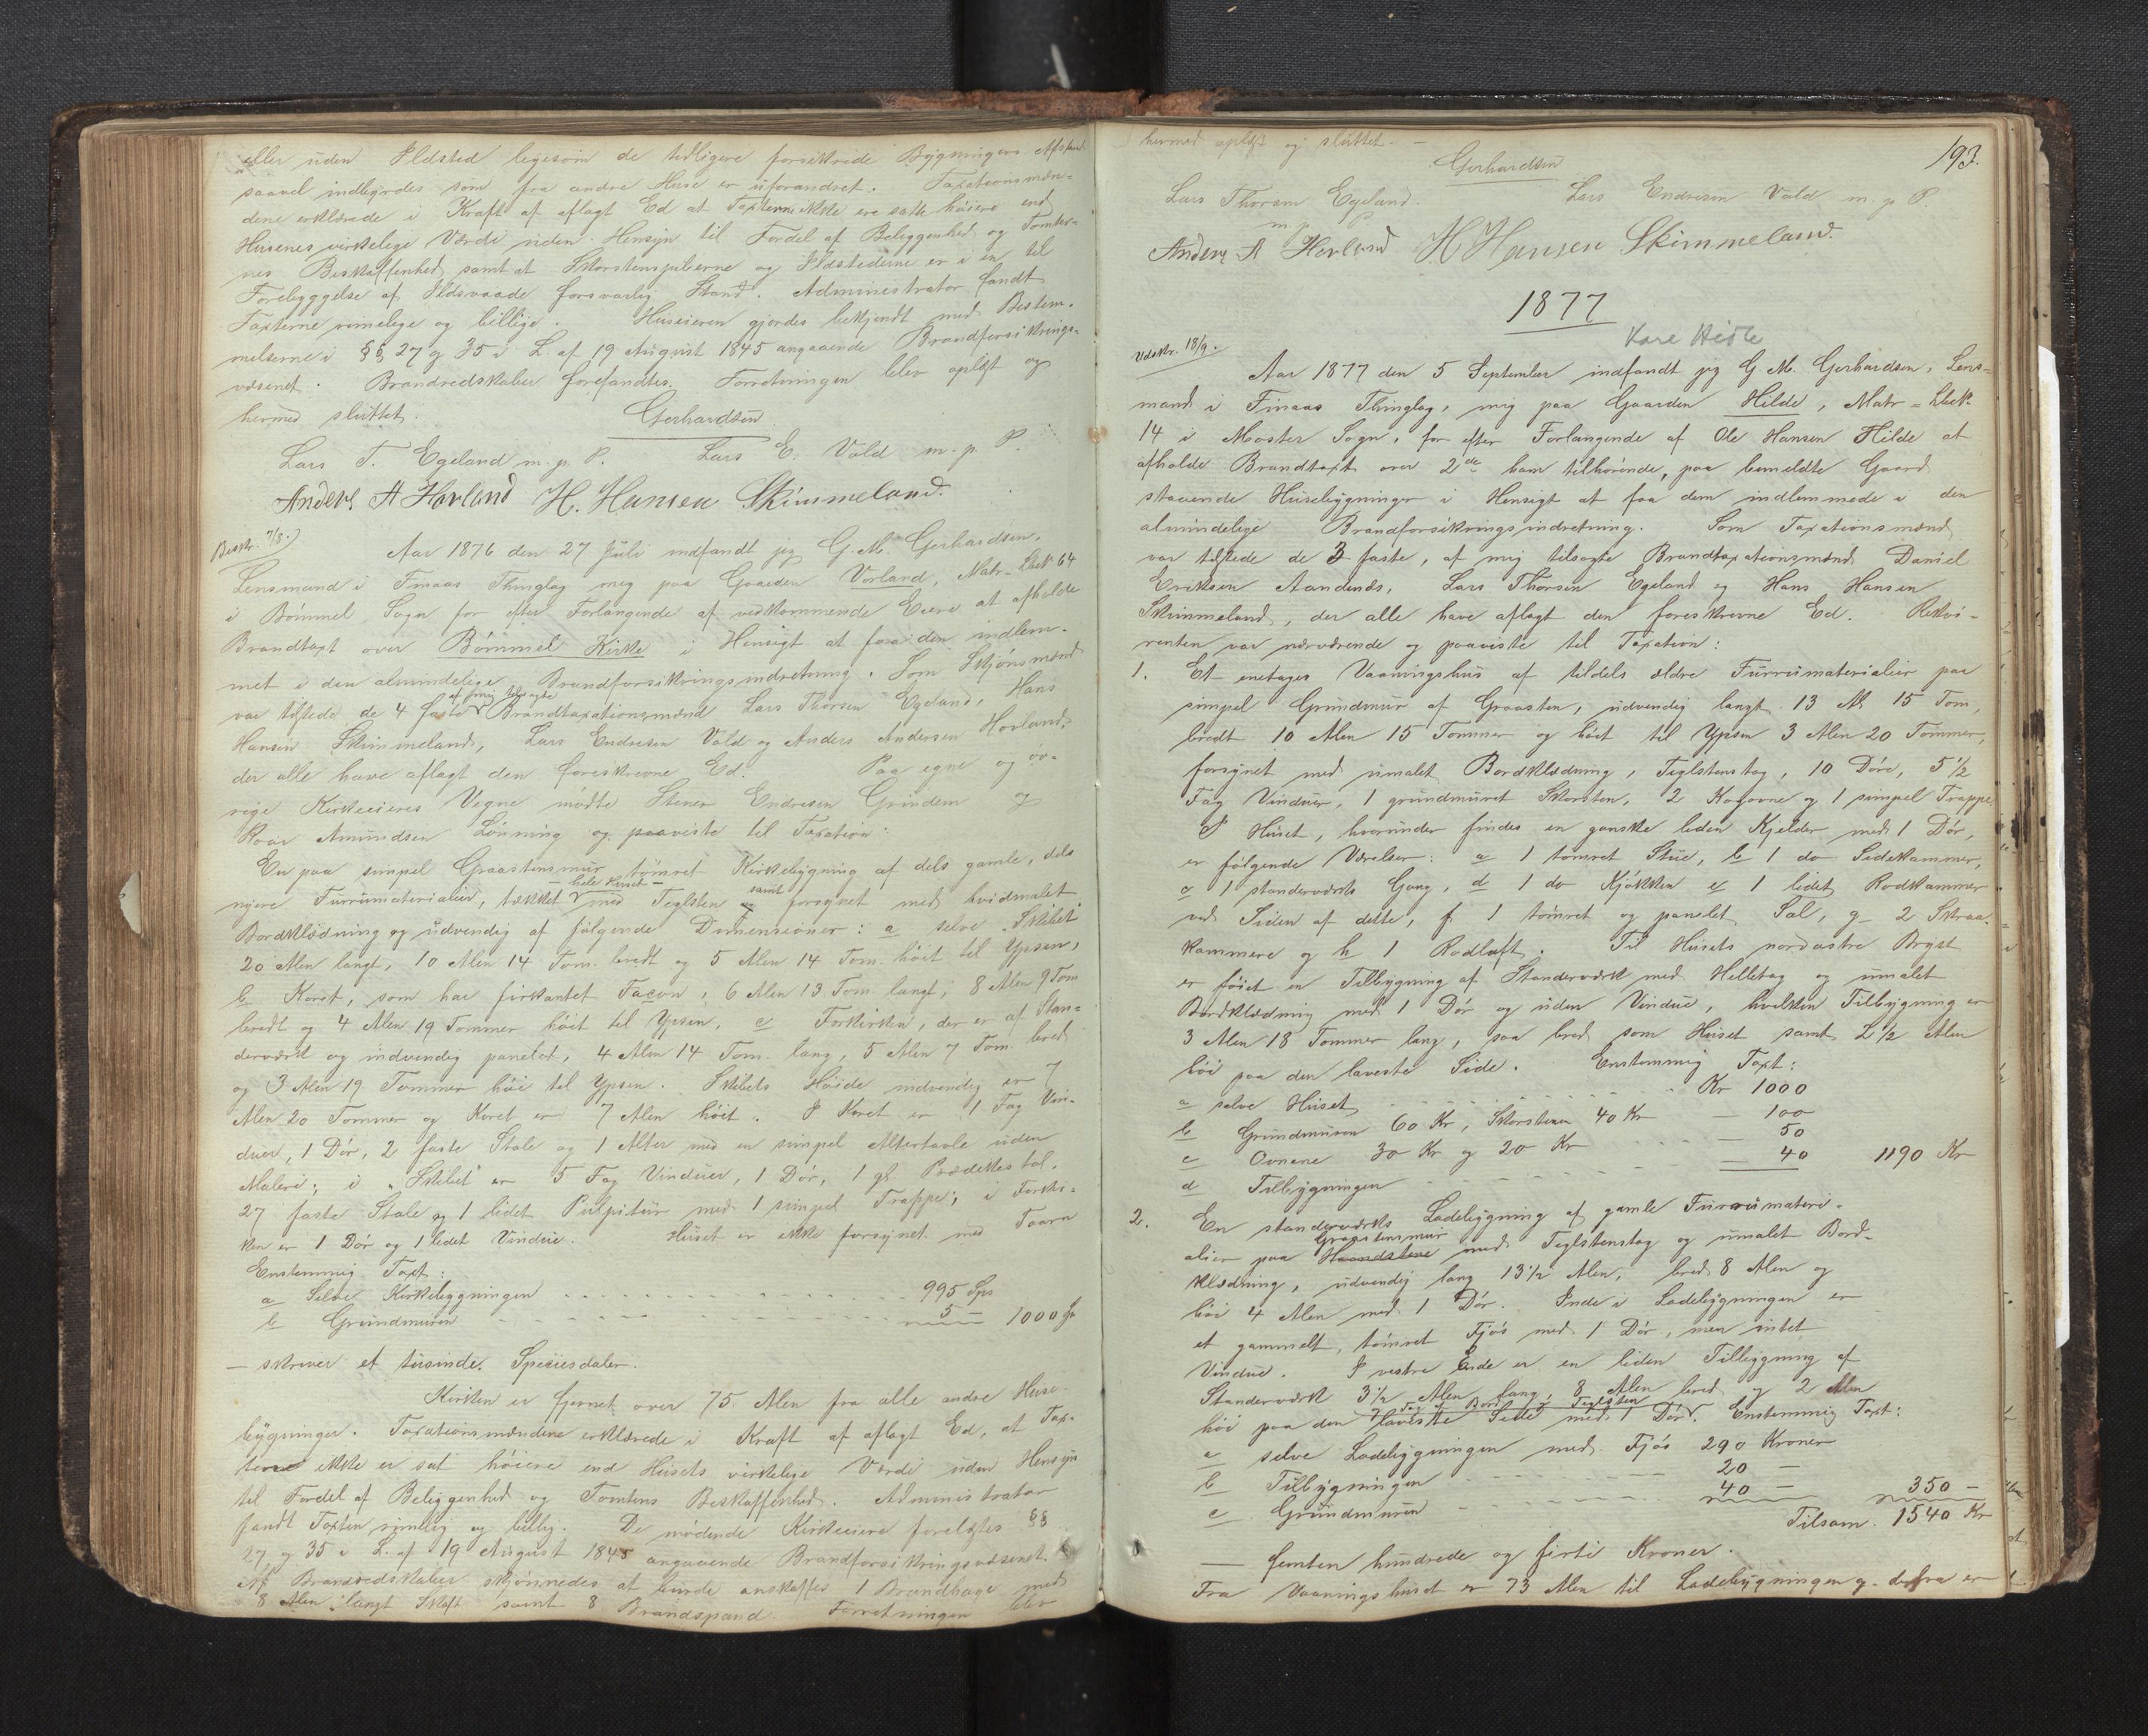 eller uden Ildsted ligesom de tidligere forsikrede Bygningers Afstand
saavel indbyrdes som fra andre Huse er uforandret. Taxationsmæn-
dene erklærede i Kraft af aflagt Ed at Taxterne ikke ere satte høiere end
Husenes virkelige Værdi uden Hensyn til Fordel af Beliggenhed og Tomter-
nes Beskaffenhed samt at Skorstenspiberne og Ildstederne er i en til
Forebyggelse af Ildsvaade forsvarlig Stand. Administrator fandt
Taxterne rimelige og billige. Huseieren gjordes bekjendt med Bestem-
melserne i §§ 27 og 35 i L. af 19 August 1845 angaaende Brandforsikrings-
væsenet. Brandredskaber forefandtes. Forretningen blev oplæst og
hermed sluttet.
Gerhardsen
Lars T. Egeland m. p. P. Lars E. Vold m. p. P.
Anders A Hovland H. Hansen Skimmeland.
Beskr. 7/8.)
Aar 1876 den 27 Juli indfandt jeg G. M. Gerhardsen,
Lensmand i Finaas Thinglag mig paa Gaarden Vorland, Matr-Løbe№ 64
i Bømmel Sogn for efter Forlangende af vedkommende Eiere at afholde
Brandtaxt over Bømmel Kirke i Hensigt at faa den indlem-
met i den almindelige Brandforsikringsindretning. Som Skjønsmænd
var tilstede de 4 faste af mig tilsagte Brandtaxationsmænd Lars Thorsen Egeland, Hans
Hansen Skimmeland, Lars Endresen Vold og Anders Andersen Hovland,
der alle have aflagt den foreskrevne Ed. Paa egne og øv-
rige Kirkeeieres Vegne mødte Stener Endresen Grindem og
Roar Amundsen Lønning og paaviste til Taxation:
En paa simpel Graastensmur tømret Kirkebygning af dels gamle, dels
nyere Furrumaterialier, tækket – hele huset – med Teglsten samt forsynet med hvidmalet
Bordklædning og udvendig af følgende Dimensioner: a selve "Skibet"
20 Alen langt, 10 Alen 14 Tom. bredt og 5 Alen 14 Tom. høit til Ypsen,
b Koret, som har firkantet Façon, 6 Alen 13 Tom langt, 8 Alen 9 Tom
bredt og 4 Alen 19 Tommer høit til Ypsen, c Forkirken, der er af Stan-
derværk og indvendig panelet, 4 Alen 14 Tom. lang, 5 Alen 7 Tom bred
og 3 Alen 19 Tommer høi til Ypsen. Skibets Høide indvendig er 7
Alen 20 Tommer og Koret er 7 Alen høit. I Koret er 1 Fag Vin-
duer, 1 Dør, 2 faste Stole og 1 Alter med en simpel Altertavle uden
Maleri; i "Skibet" er 5 Fag Vinduer, 1 Dør, 1 gl. Prædikestol,
27 faste Stole og 1 lidet Pulpitur med 1 simpel Trappe; i Forkir-
ken er 1 Dør og 1 lidet Vindue. Huset er ikke forsynet med Taarn
Enstemmig Taxt:
a Selve Kirkebygningen 995 Spd
b Grundmuren 5 — 1000 Spd
— skriver et tusinde Speciesdaler.
Kirken er fjernet over 75 Alen fra alle andre Huse-
bygninger. Taxationsmændene erklærede i Kraft af aflagt Ed, at Tax-
terne ikke er sat høiere end Husets virkelige Værdi uden Hensyn
til Fordel af Beliggenhed og Tomtens Beskaffenhed. Administrator
fandt Taxten rimelig og billig. De mødende Kirkeeiere forelæstes §§
27 og 35 i L. af 19 August 1845 angaaende Brandforsikringsvæsenet.
Af Brandredskaber skjønnedes at burde anskaffes 1 Brandhage med
8 Alen langt Skaft samt 8 Brandspand. Forretningen blev
193.
hermed oplæst og sluttet. —
Gerhardsen
Lars Thorsen Egeland. Lars Endresen Vold m. p. P.
m. p. P.
Anders A Hovland H Hansen Skimmeland.
1877
Kare Hisle
Udskr. 18/9.
Aar 1877 den 5 September indfandt jeg G. M. Gerhardsen, Lens-
mand i Finaas Thinglag, mig paa Gaarden Hilde, Matr-Løbe№
14 i Moster Sogn, for efter Forlangende af Ole Hansen Hilde at
afholde Brandtaxt over 2de ham tilhørende, paa bemeldte Gaard
staaende Husebygninger i Hensigt at faa dem indlemmede i den
almindelige Brandforsikringsindretning. Som Taxationsmænd
var tilstede de 3 faste, af mig tilsagte Brandtaxationsmænd Daniel
Eriksen Aandends, Lars Thorsen Egeland og Hans Hansen
Skimmeland, der alle have aflagt den foreskrevne Ed. Rekvi-
renten var nærværende og paaviste til Taxation:
1. Et enetages Vaaningshus af tildels ældre Furrumaterialier paa
simpel Grundmur af Graasten, udvendig langt 13 Al. 15 Tom,
bredt 10 Alen 15 Tommer og høit til Ypsen 3 Alen 20 Tommer,
forsynet med umalet Bordklædning, Teglstenstag, 10 Døre, 5 1/2
Fag Vinduer, 1 grundmuret Skorsten, 2 Kogovne og 1 simpel Trappe.
I Huset, hvorunder findes en ganske liden Kjelder med 1 Dør,
er følgende Værelser: a 1 tømret Stue, b 1 do Sidekammer,
c 1 standerværks Gang, d 1 do Kjøkken e 1 lidet Rodkammer
ved Siden af dette, f 1 tømret og panelet Sal, g 2 Skraa-
kammere og h 1 Rodloft. Til Husets nordøstre Bryst
er føiet en Tilbygning af Standerværk med Helletag og umalet
Bordklædning med 1 Dør og uden Vindue, hvilken Tilbygning er
3 Alen 18 Tommer lang, saa bred som Huset samt 2 1/2 Alen
høi paa den laveste Side. Enstemmig Taxt:
a selve Huset Kr 1000
b Grundmuren 60 Kr, Skorstenen 40 Kr — 100
c Ovnene 30 Kr og 20 Kr — 50
d Tilbygningen — 40 1190 Kr
2. En standerværks Ladebygning af gamle Furrumateri-
alier paa Graastensmur med Teglstenstag og umalet Bord-
klædning, udvendig lang 13 1/2 Alen, bred 8 Alen og
høi 4 Alen med 1 Dør. Inde i Ladebygningen er
et gammelt, tømret Fjøs med 1 Dør, men intet
Vindue. I vestre Ende er en liden Tilbygning af
Standerværk 3 1/2 Alen lang, 8 Alen bred og 2 Alen
høi paa den laveste Side med 1 Dør, Tag af Bord og Teglsten. Enstemmig Taxt:
a selve Ladebygningen med Fjøs 290 Kroner
b Tilbygningen 20 —
c Grundmuren 40 — 350 —
Tilsam. 1540 Kr
— femten hundrede og firti Kroner.
Fra Vaaningshuset er 73 Alen til Ladebygningen og derfra er